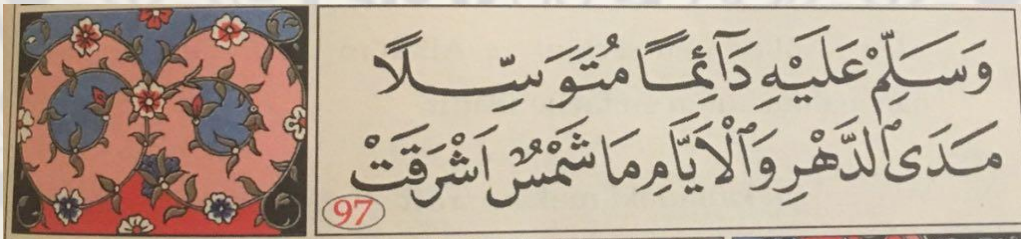 وَسَلِّمْ عَلَيْهِ دَآئِمًا مُتَوَسِّلًا
مَدَى ٱلدَّهْرِ وَٱلْاَيَّامِ مَا شَمْسٌ اَشْرَقَتْ
97